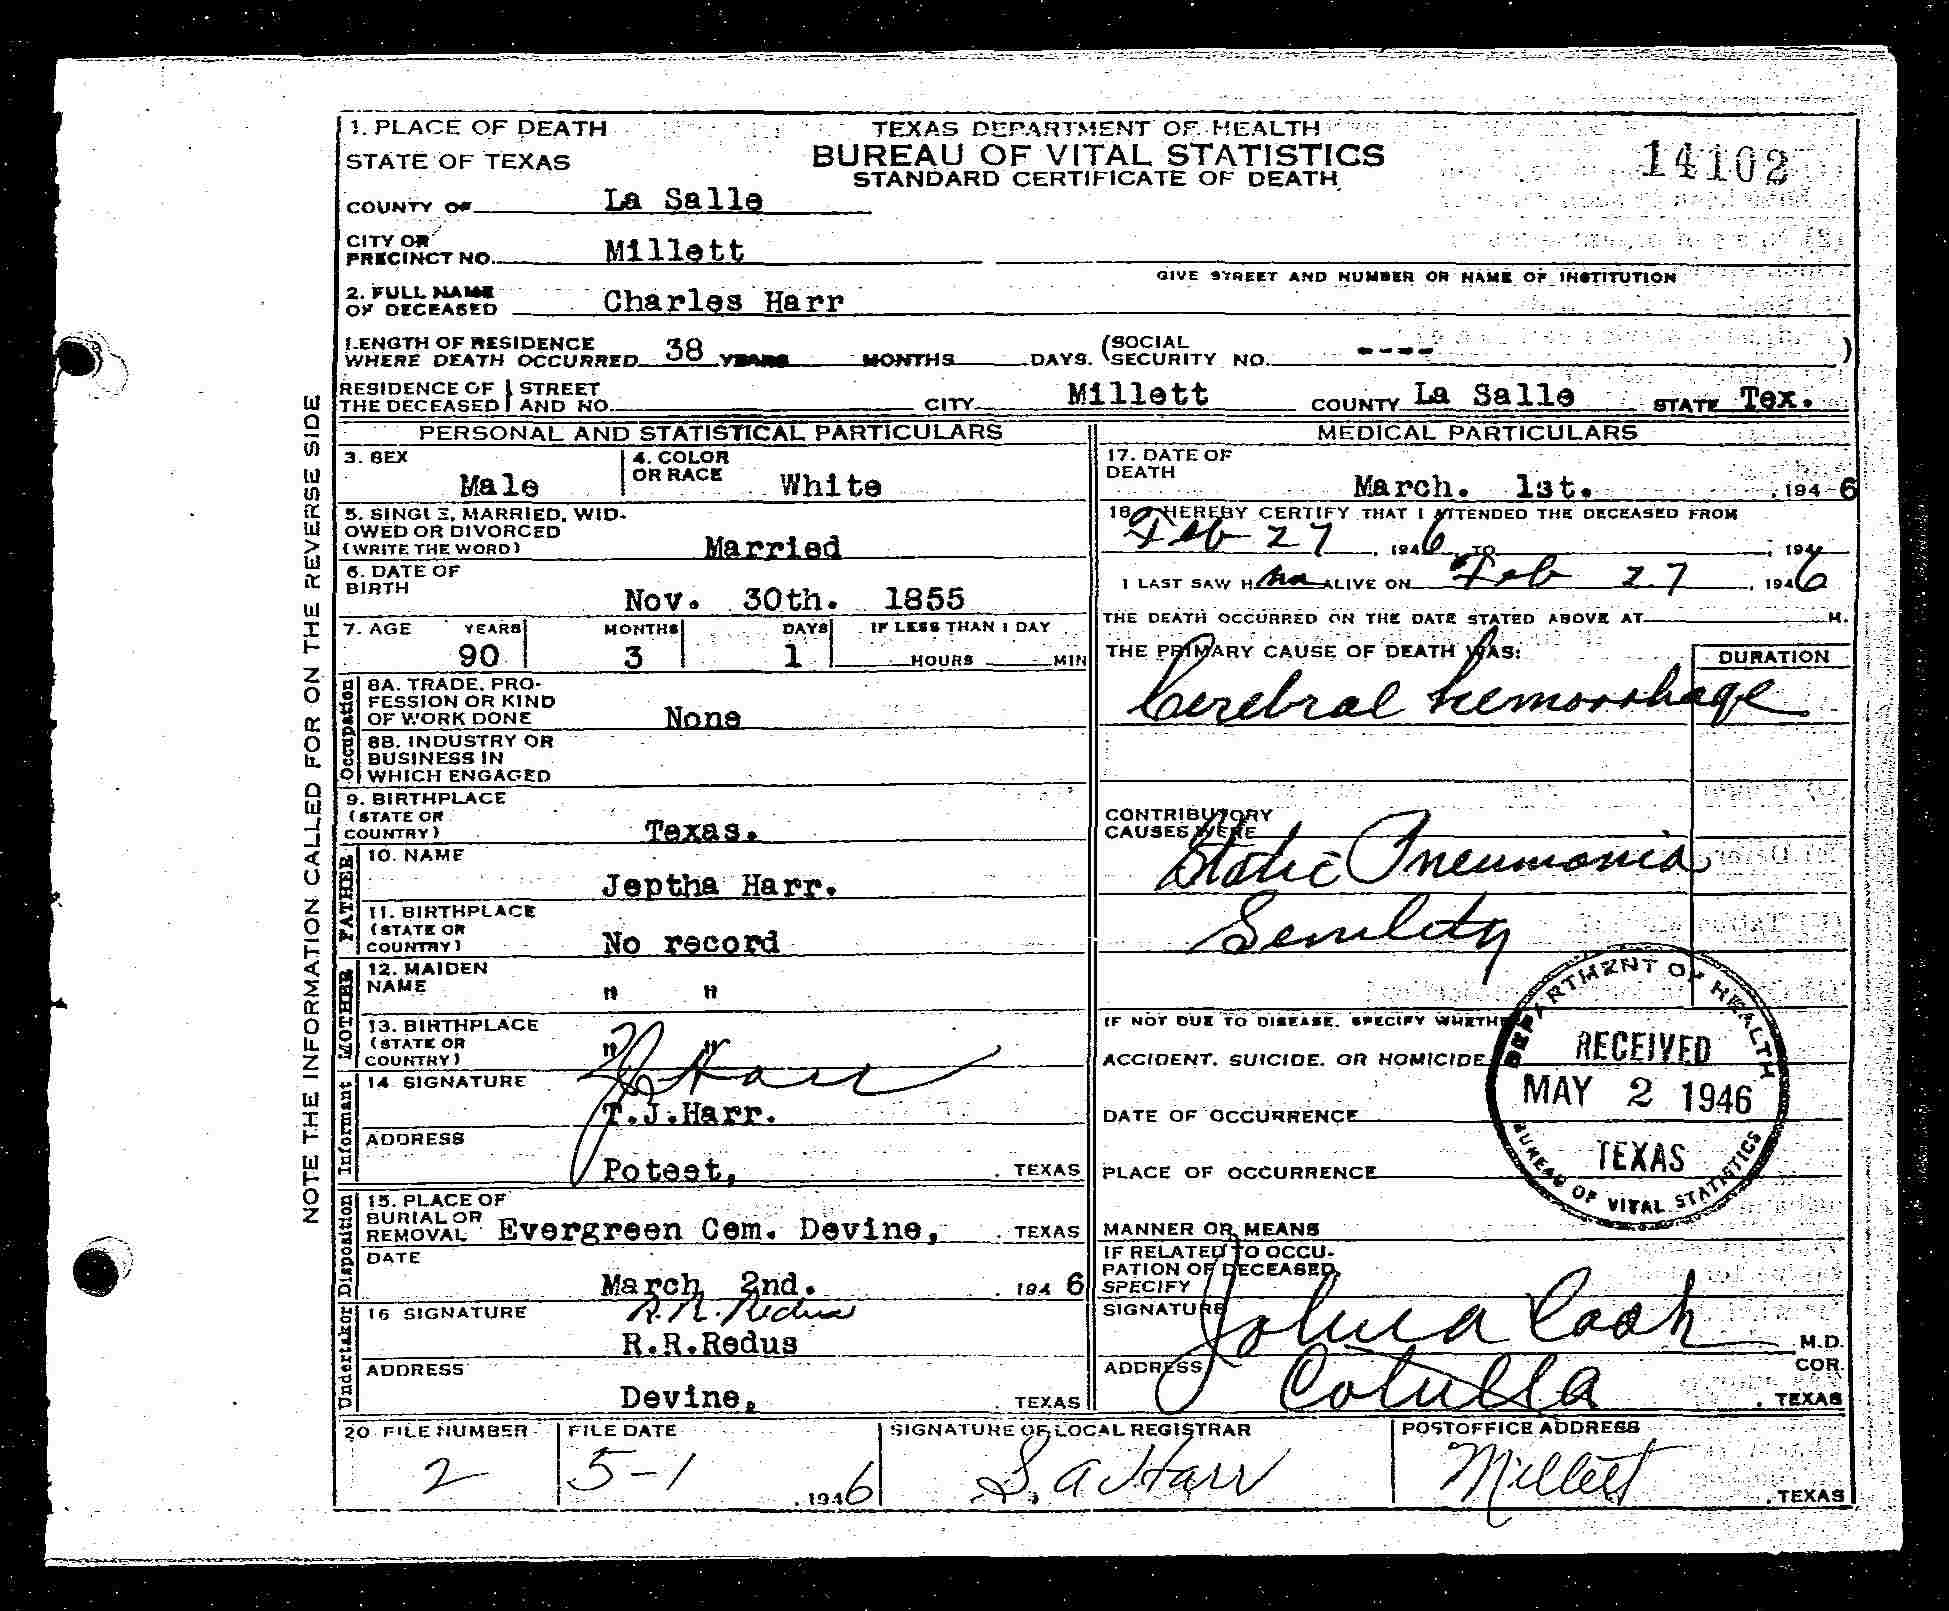 NOTE THE INFORMATION CALLED FOR ON THE REVERSE SIDE
1. PLACE OF DEATH
STATE OF TEXAS
TEXAS DEPARTMENT OF HEALTH
BUREAU OF VITAL STATISTICS
STANDARD CERTIFICATE OF DEATH
14102
COUNTY OF La Salle
CITY OR PRECINCT NO. Millett
GIVE STREET AND NUMBER OR NAME OF INSTITUTION
2. FULL NAME OF DECEASED Charles Harr
LENGTH OF RESIDENCE WHERE DEATH OCCURRED 38 YEARS MONTHS DAYS. (SOCIAL SECURITY NO. ---- )
RESIDENCE OF THE DECEASED STREET AND NO. CITY Millett COUNTY La Salle STATE Tex.
PERSONAL AND STATISTICAL PARTICULARS
3. SEX Male
4. COLOR OR RACE White
5. SINGLE, MARRIED, WIDOWED OR DIVORCED (WRITE THE WORD) Married
6. DATE OF BIRTH Nov. 30th. 1855
7. AGE YEARS MONTHS DAYS IF LESS THAN 1 DAY
90 3 1 HOURS MIN
Occupation
8A. TRADE, PROFESSION OR KIND OF WORK DONE None
8B. INDUSTRY OR BUSINESS IN WHICH ENGAGED
9. BIRTHPLACE (STATE OR COUNTRY) Texas.
FATHER
10. NAME Jeptha Harr.
11. BIRTHPLACE (STATE OR COUNTRY) No record
MOTHER
12. MAIDEN NAME " "
13. BIRTHPLACE (STATE OR COUNTRY) " "
Informant
14. SIGNATURE T J Harr
T.J.Harr.
ADDRESS Poteet, TEXAS
Disposition
15. PLACE OF BURIAL OR REMOVAL Evergreen Cem. Devine, TEXAS
DATE March 2nd. 194 6
Undertaker
16 SIGNATURE R.R. Redus
R.R.Redus
ADDRESS Devine, TEXAS
MEDICAL PARTICULARS
17. DATE OF DEATH March. 1st. , 194-6
18. I HEREBY CERTIFY THAT I ATTENDED THE DECEASED FROM
Feb 27, 1946 TO , 194
I LAST SAW Him ALIVE ON Feb 27, 1946
THE DEATH OCCURRED ON THE DATE STATED ABOVE AT M.
THE PRIMARY CAUSE OF DEATH WAS: DURATION
Cerebral hemorrhage
CONTRIBUTORY CAUSES WERE
Static Pneumonia
Senility
IF NOT DUE TO DISEASE, SPECIFY WHETHER
ACCIDENT, SUICIDE, OR HOMICIDE
DATE OF OCCURRENCE
PLACE OF OCCURRENCE
MANNER OR MEANS
IF RELATED TO OCCUPATION OF DECEASED, SPECIFY
DEPARTMENT OF HEALTH
RECEIVED
MAY 2 1946
TEXAS
BUREAU OF VITAL STATISTICS
SIGNATURE Joshua Cook M.D.
COR.
ADDRESS Cotulla, TEXAS
20 FILE NUMBER FILE DATE SIGNATURE OF LOCAL REGISTRAR POSTOFFICE ADDRESS
2 5-1, 1946 S. A Harr Millett, TEXAS